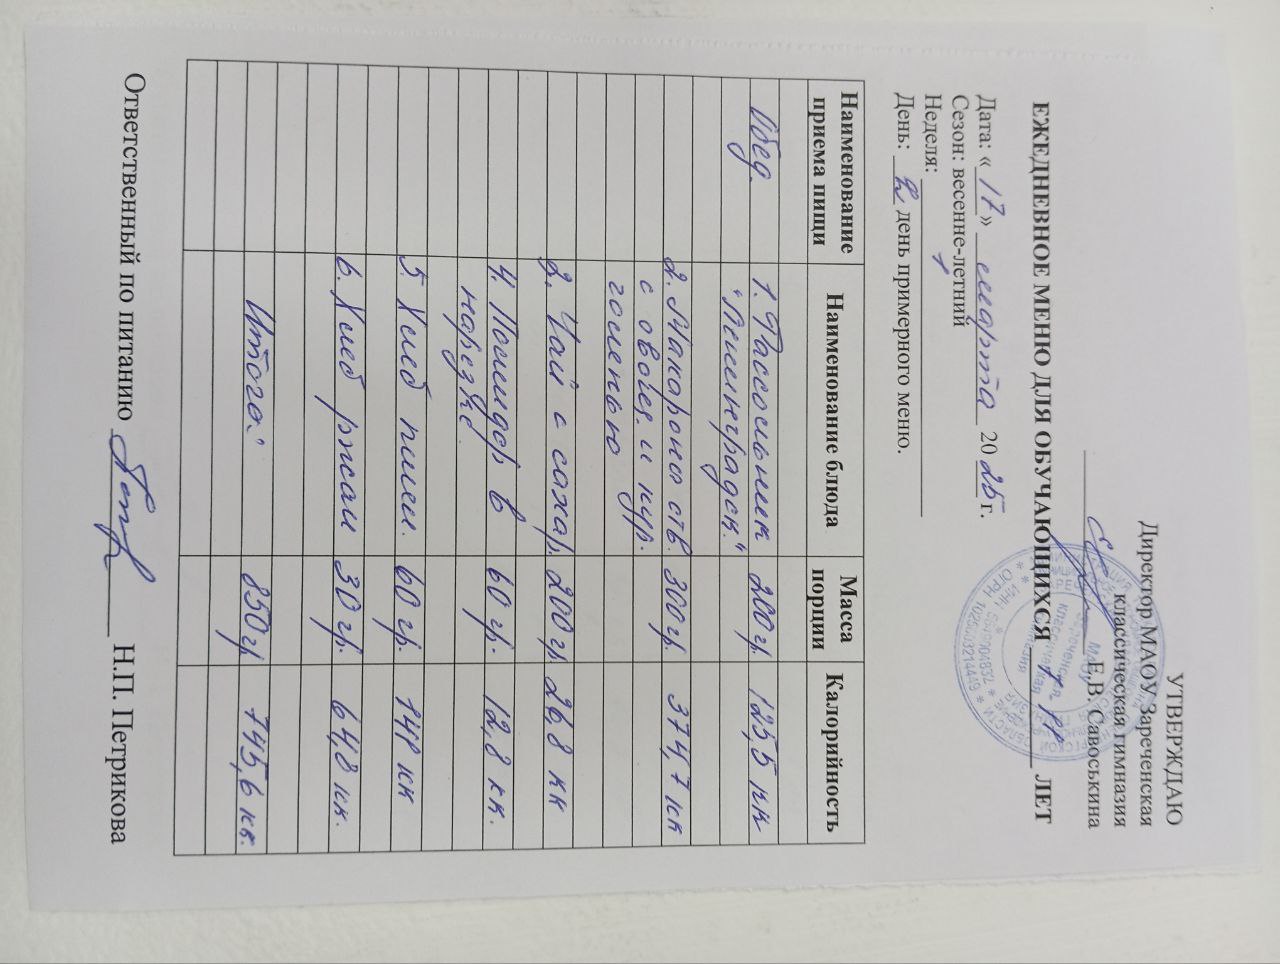 УТВЕРЖДАЮ
Директор МАОУ Зареченская
классическая гимназия
Е.В. Савоськина
ЕЖЕДНЕВНОЕ МЕНЮ ДЛЯ ОБУЧАЮЩИХСЯ ЛЕТ
Дата: «17» марта 2025 г.
Сезон: весенне-летний
Неделя:
День: 2 день примерного меню.
Наименование приема пищи Наименование блюда Масса порции Калорийность
Обед. 1. Рассольник 200гр. 125,5 кк
"Ленинградск."
2. Макароны отв. 300гр. 374,7 кк
с овощ. и кур.
голенью
3. Чай с сахар. 200гр. 26,8 кк
4. Помидор в 60 гр. 12,8 кк.
нарезке.
5. Хлеб пшен. 60 гр. 141 кк
6. Хлеб ржан 30 гр. 64,8 кк.
Итого: 850гр 745,6 кк.
Ответственный по питанию Н.П. Петрикова